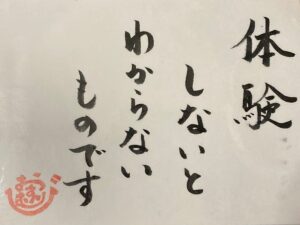 体験
しないと
わからない
ものです